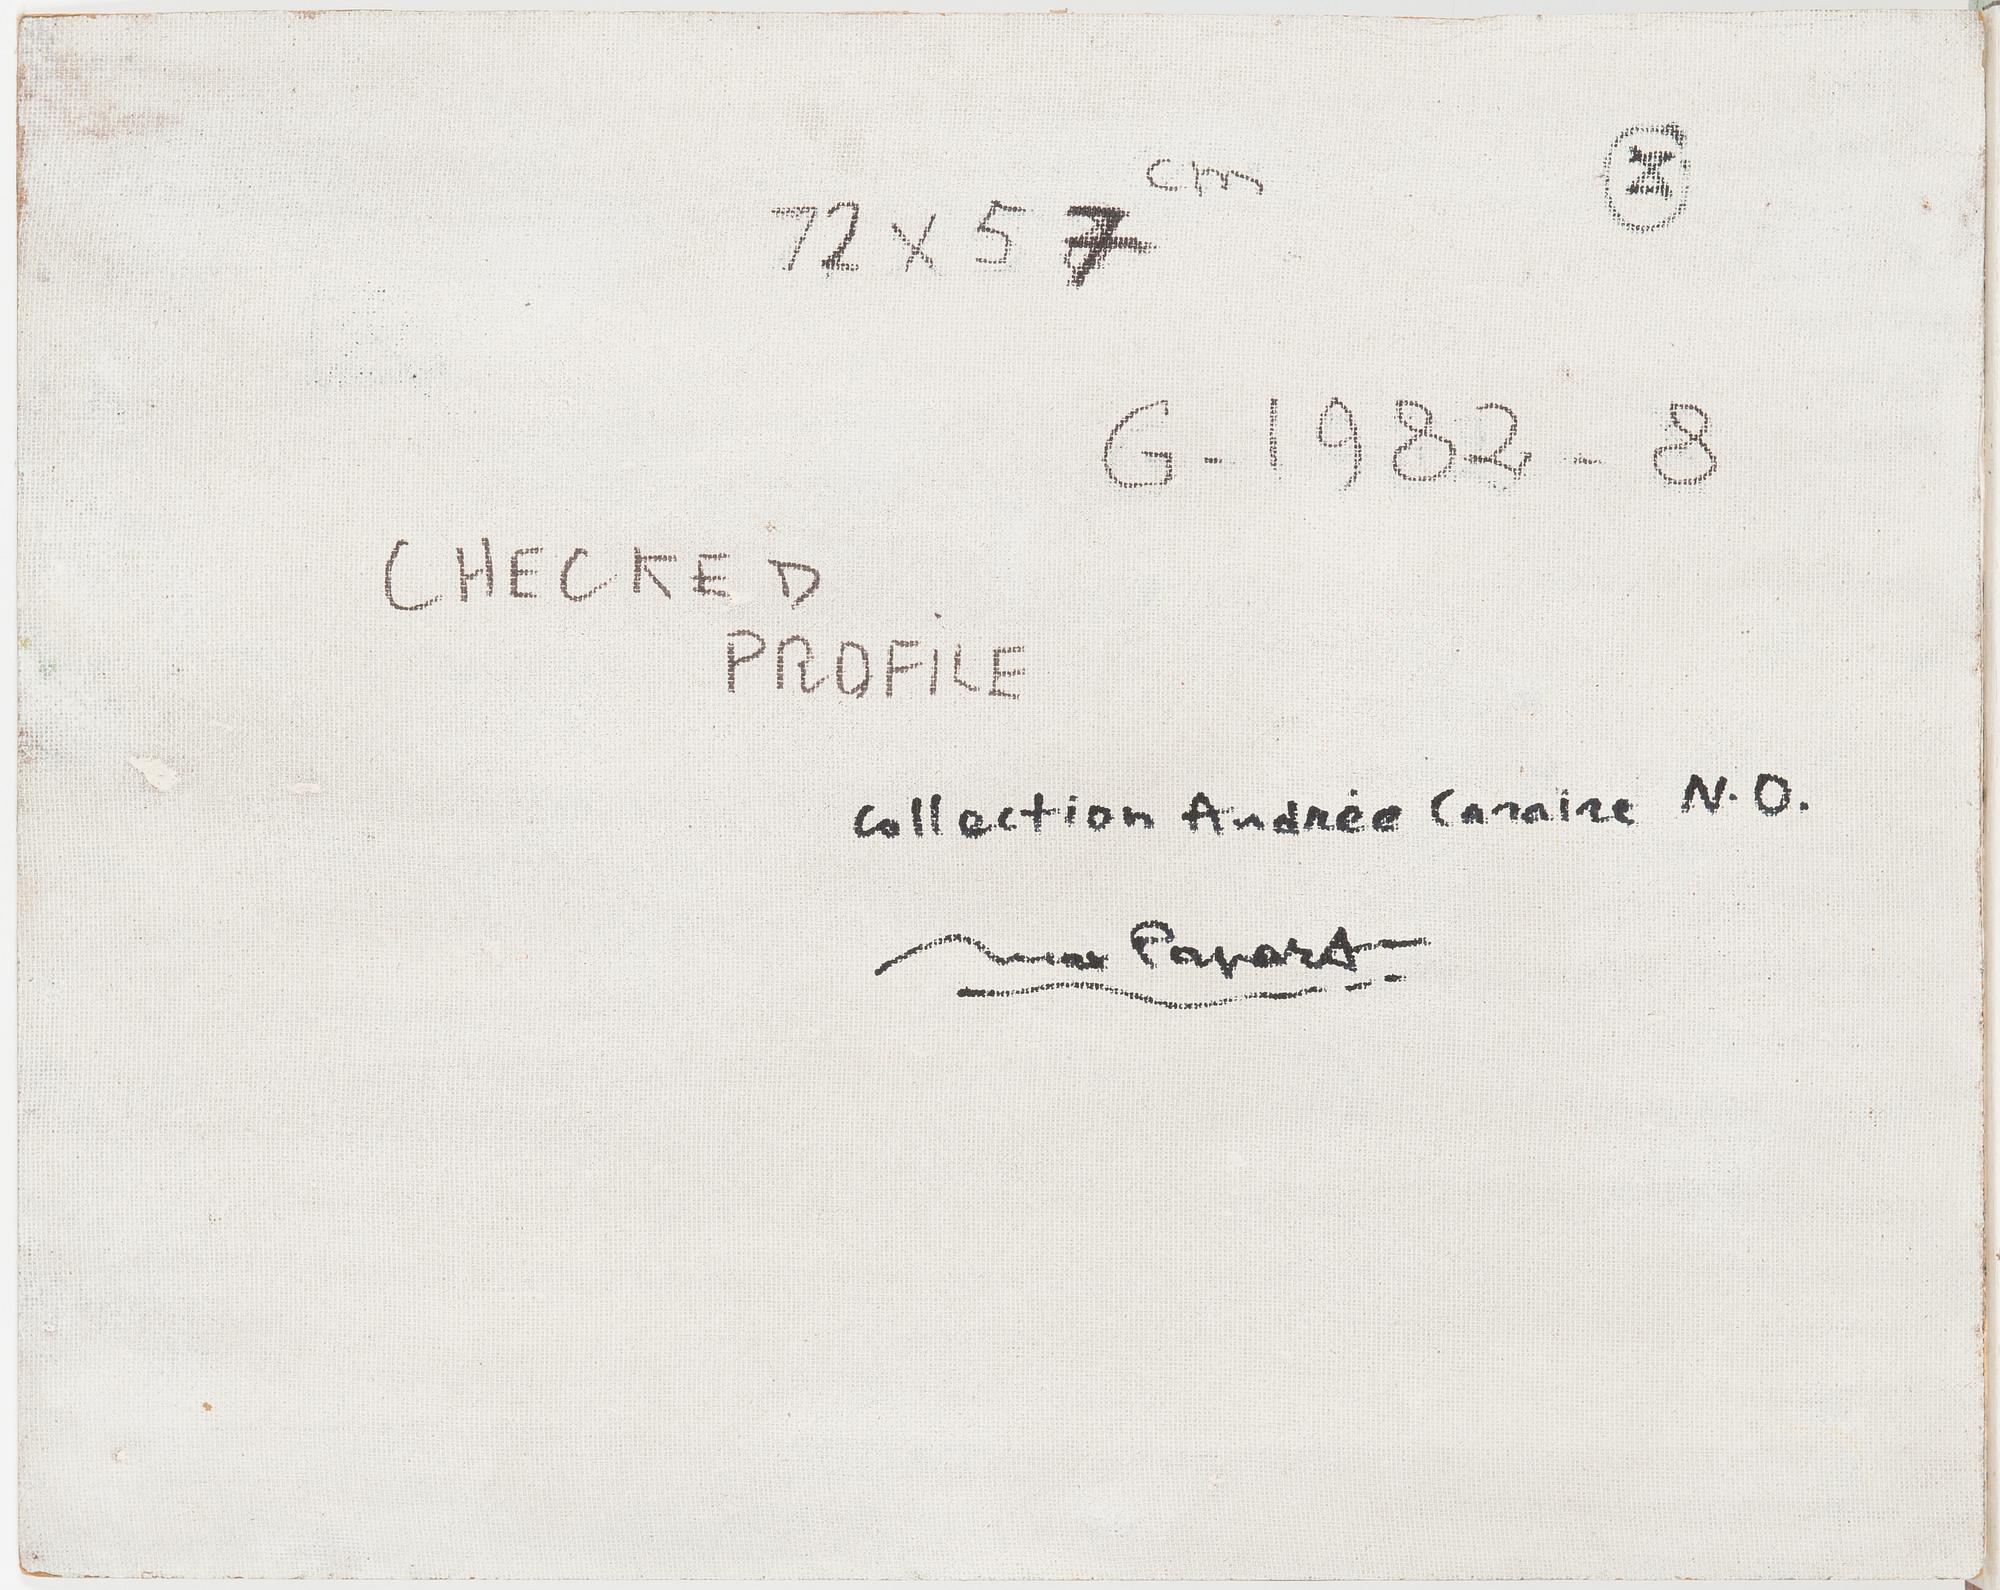 72 x 57 cm
G-1982-8
CHECKED
PROFILE
Collection Andrée Caraire N.O.
Max Papart